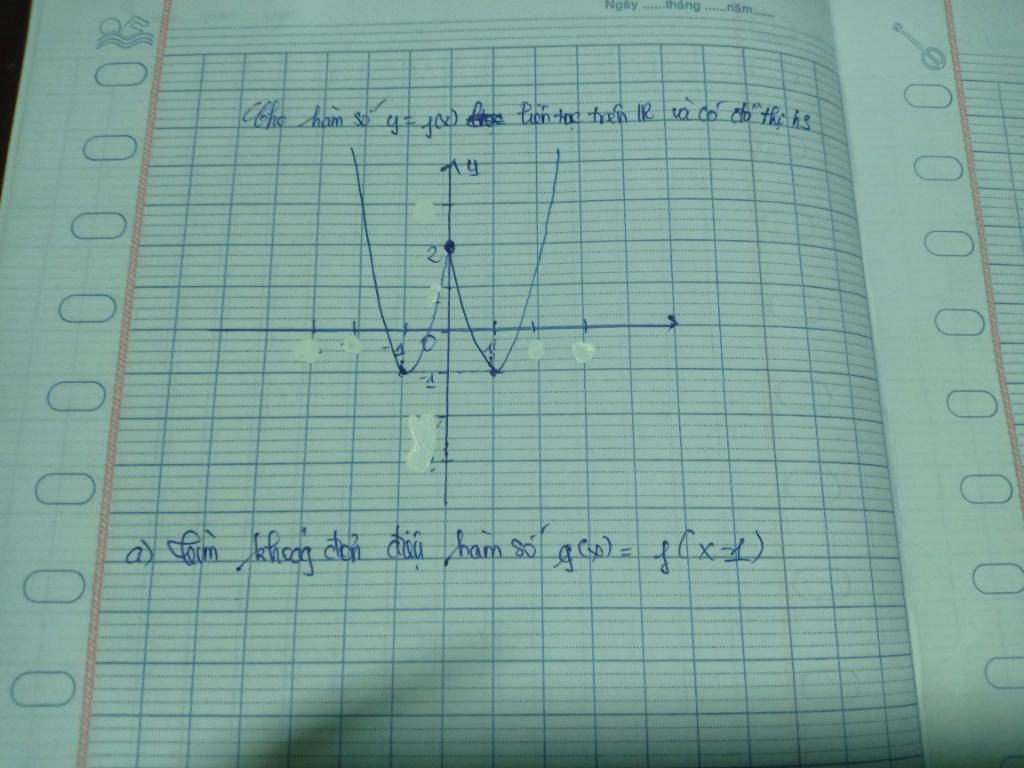 Ngày ......tháng ......năm......
Cho hàm số y = f(x) liên tục trên IR và có đồ thị hs
y
2
-1 0 1
-1
a) Tìm khoảng đơn điệu hàm số g(x) = f(x-1)